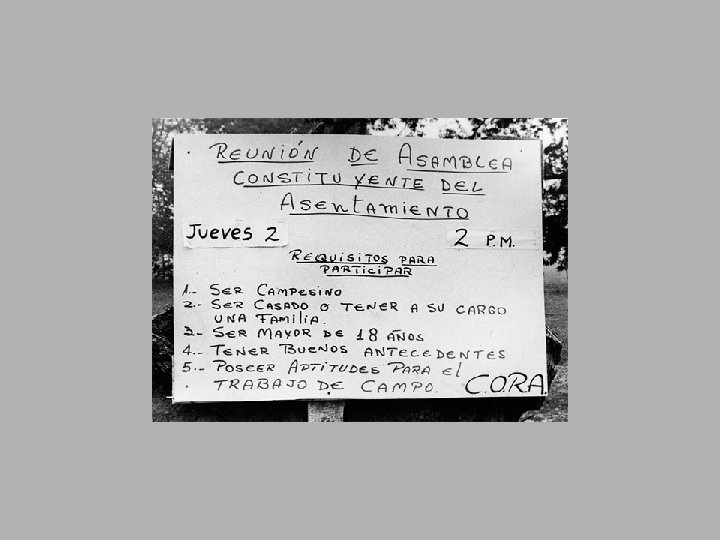 REUNIÓN DE ASAMBLEA
CONSTITUYENTE DEL
ASENTAMIENTO
Jueves 2 2 P.M.
REQUISITOS PARA
PARTICIPAR
1.- SER CAMPESINO
2.- SER CASADO O TENER A SU CARGO
UNA FAMILIA.
3.- SER MAYOR DE 18 AÑOS
4.- TENER BUENOS ANTECEDENTES
5.- POSEER APTITUDES PARA el
TRABAJO DE CAMPO. C.O.R.A.